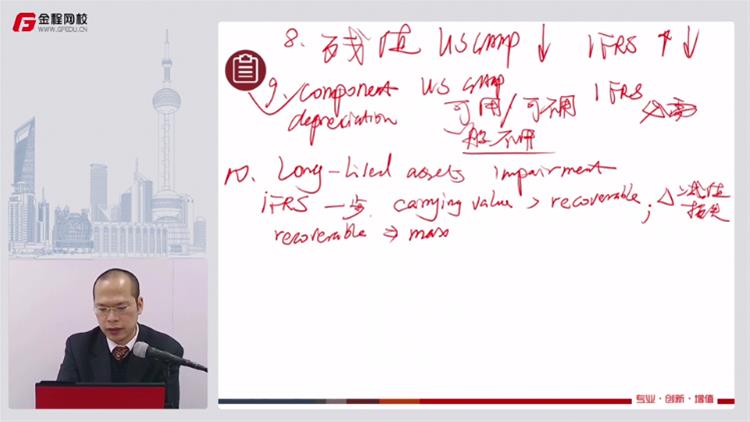 金程网校
WWW.GFEDU.CN
8. 残值 US GAAP ↓ IFRS ↑↓
9. component US GAAP IFRS 必需
depreciation 可用/可不用
一般不用
10. Long-lived assets impairment
IFRS 一步 carrying value > recoverable; Δ 减值
损失
recoverable ⇒ max
专业·创新·增值